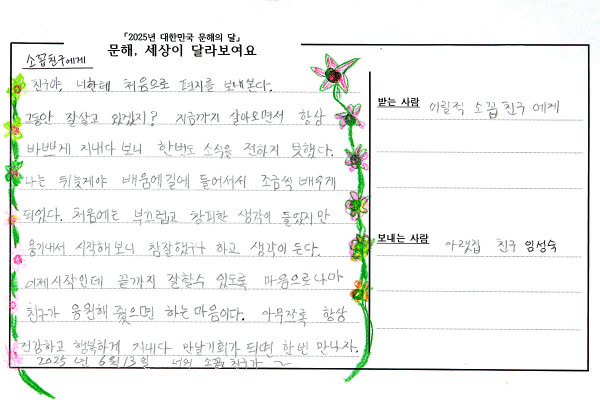 『2025년 대한민국 문해의 달』
문해, 세상이 달라보여요
소꼽친구에게
친구야, 너한테 처음으로 편지를 보내본다.
그동안 잘살고 있겠지? 지금까지 살아오면서 항상
바쁘게 지내다 보니 한번도 소식을 전하지 못했다.
나는 뒤늦게야 배움에길에 들어서서 조금씩 배우게
되었다. 처음에는 부끄럽고 창피한 생각이 들었지만
용기내서 시작해보니 참잘했구나 하고 생각이 든다.
이제시작인데 끝까지 잘할수 있도록 마음으로나마
친구가 응원해 줬으면 하는마음이다. 아무쪼록 항상
건강하고 행복하게 지내다 만날기회가 되면 한번 만나자.
2025년 6월 13일 너의 소꼽친구가
받는 사람 어릴적 소꼽친구에게
보내는 사람 아랫집 친구 임성숙